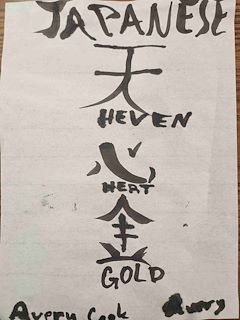 JAPANESE
天
HEVEN
心
HEAT
金
GOLD
Avery Cook Avery